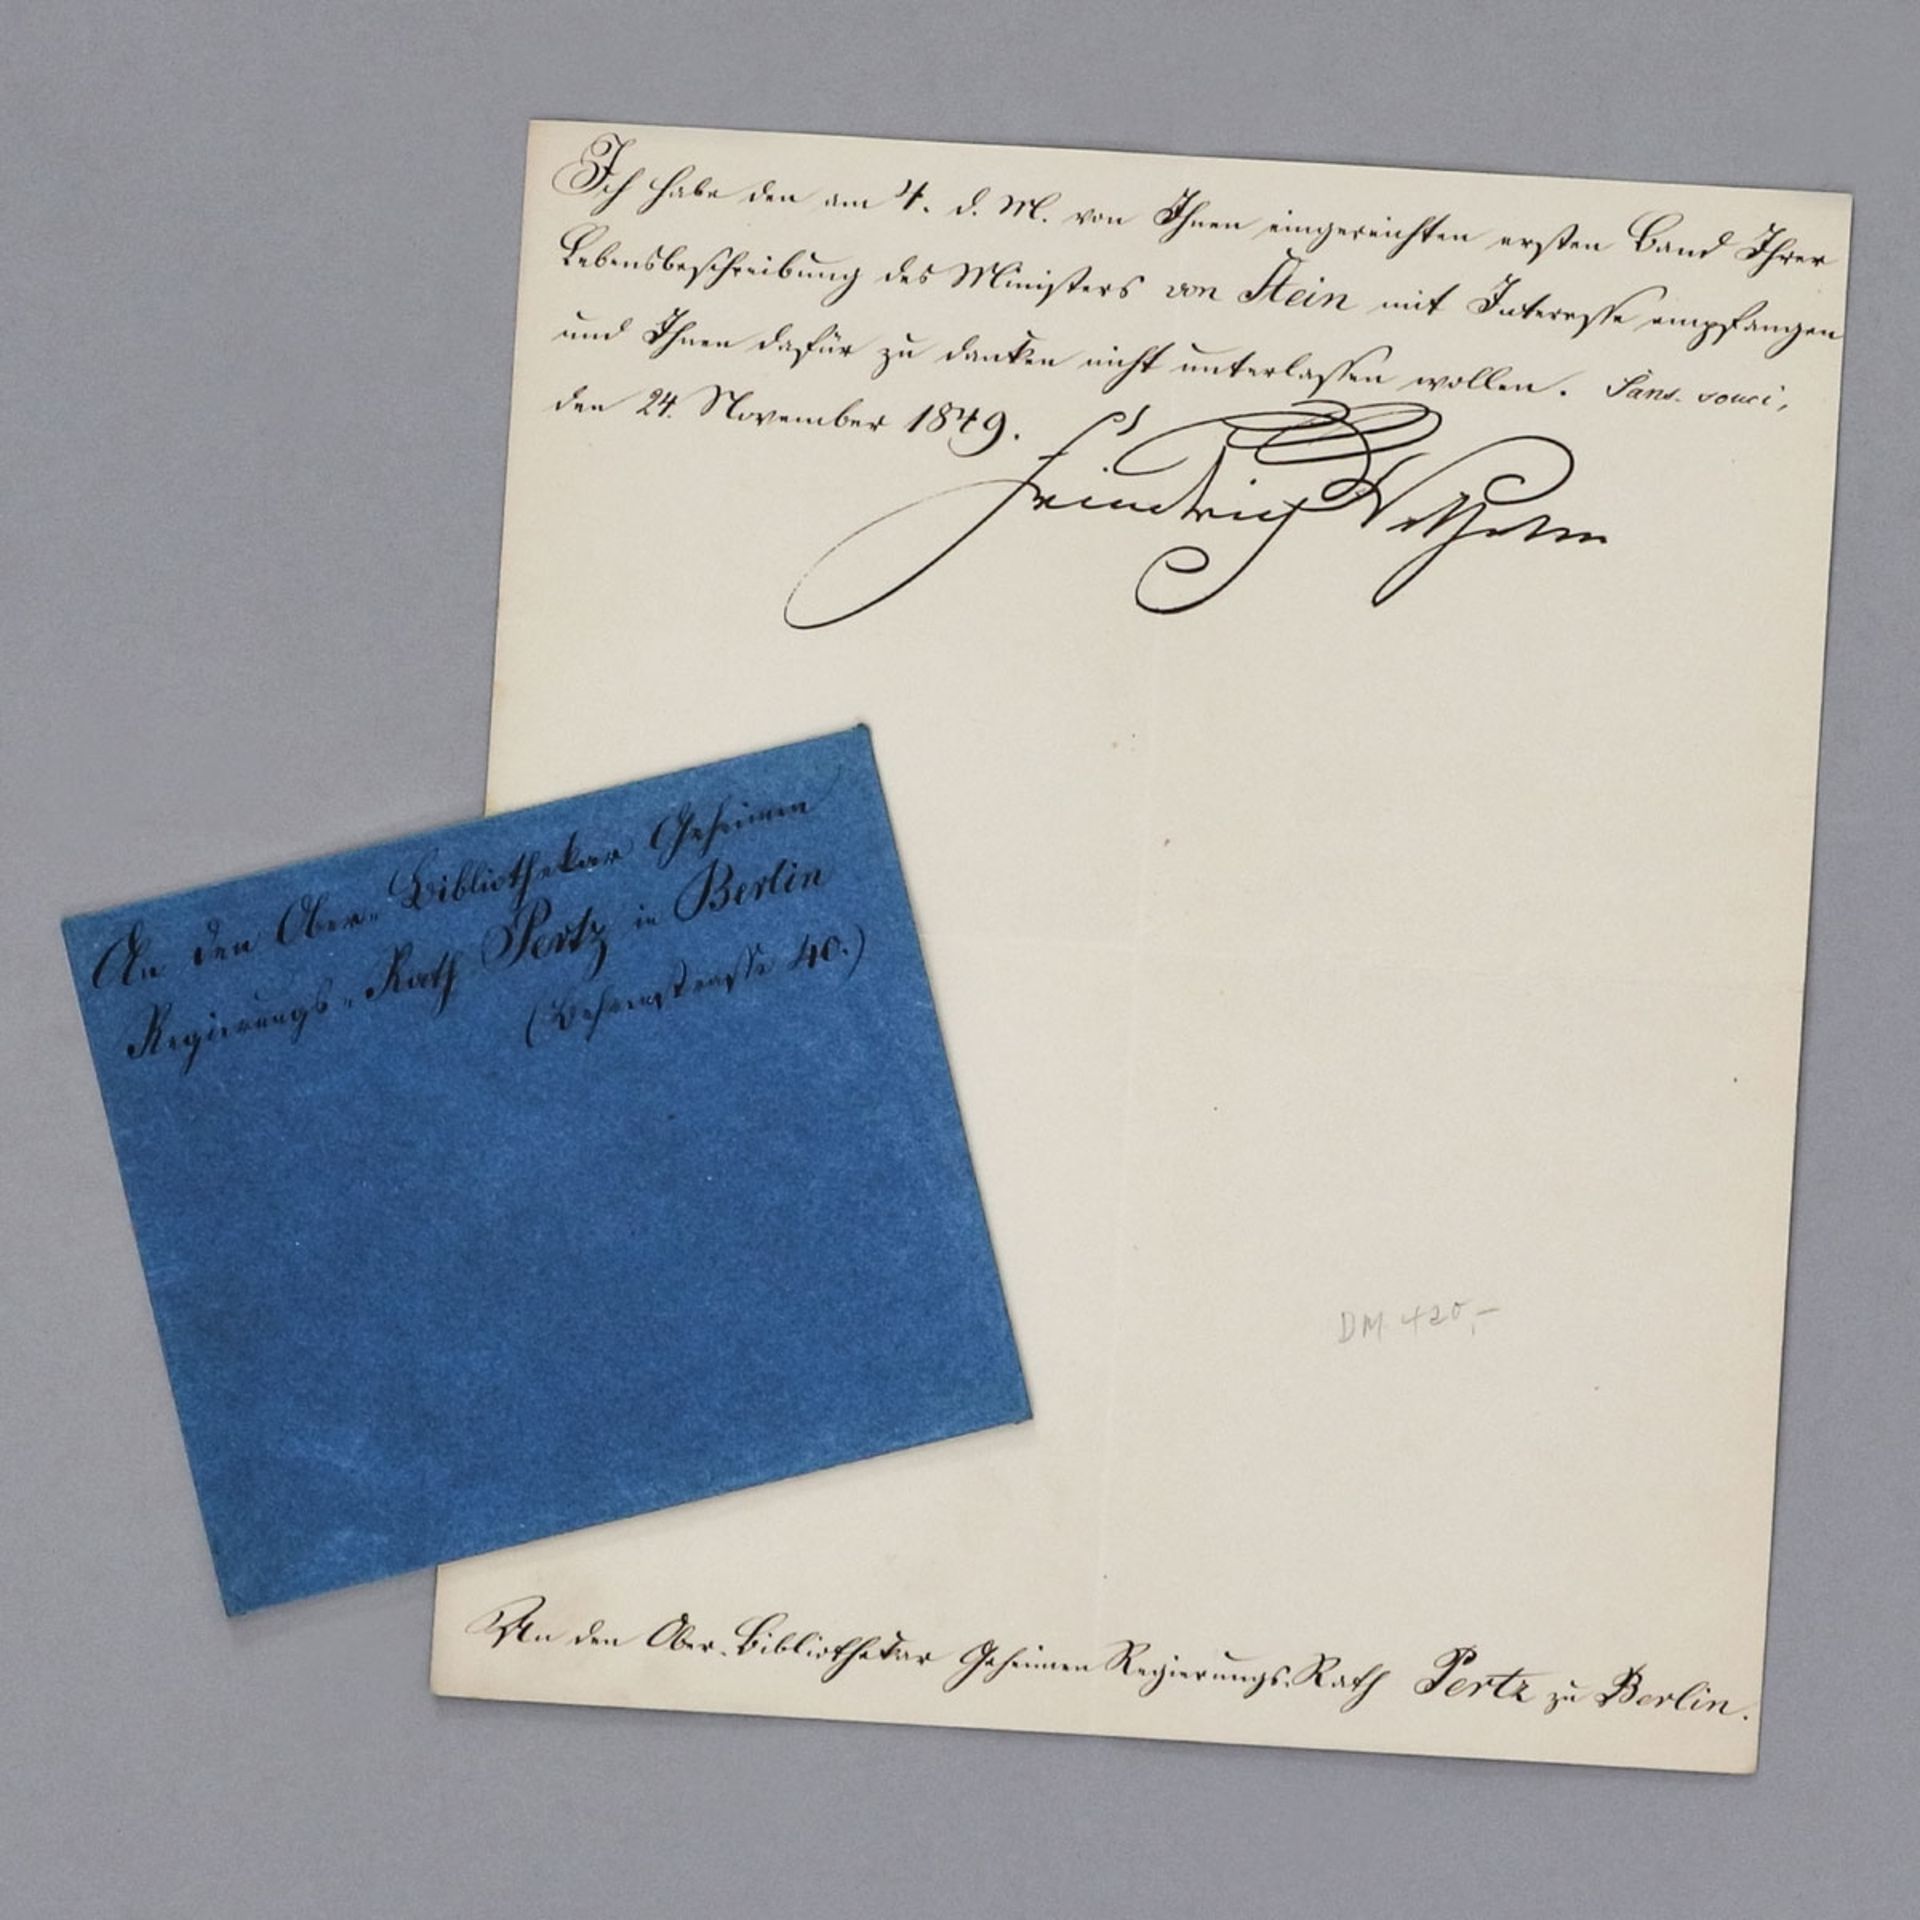 Ich habe den am 4. d. M. von Ihnen eingereichten ersten Band Ihrer
Lebensbeschreibung des Ministers von Stein mit Interesse empfangen
und Ihnen dafür zu danken nicht unterlassen wollen. Sans-souci,
den 24. November 1849.
Friedrich Wilhelm
An den Ober-Bibliothekar Geheimen
Regierungs-Rath Pertz in Berlin
(Behrenstrasse 40.)
DM 420,-
An den Ober-Bibliothekar Geheimen Regierungs-Rath Pertz zu Berlin.